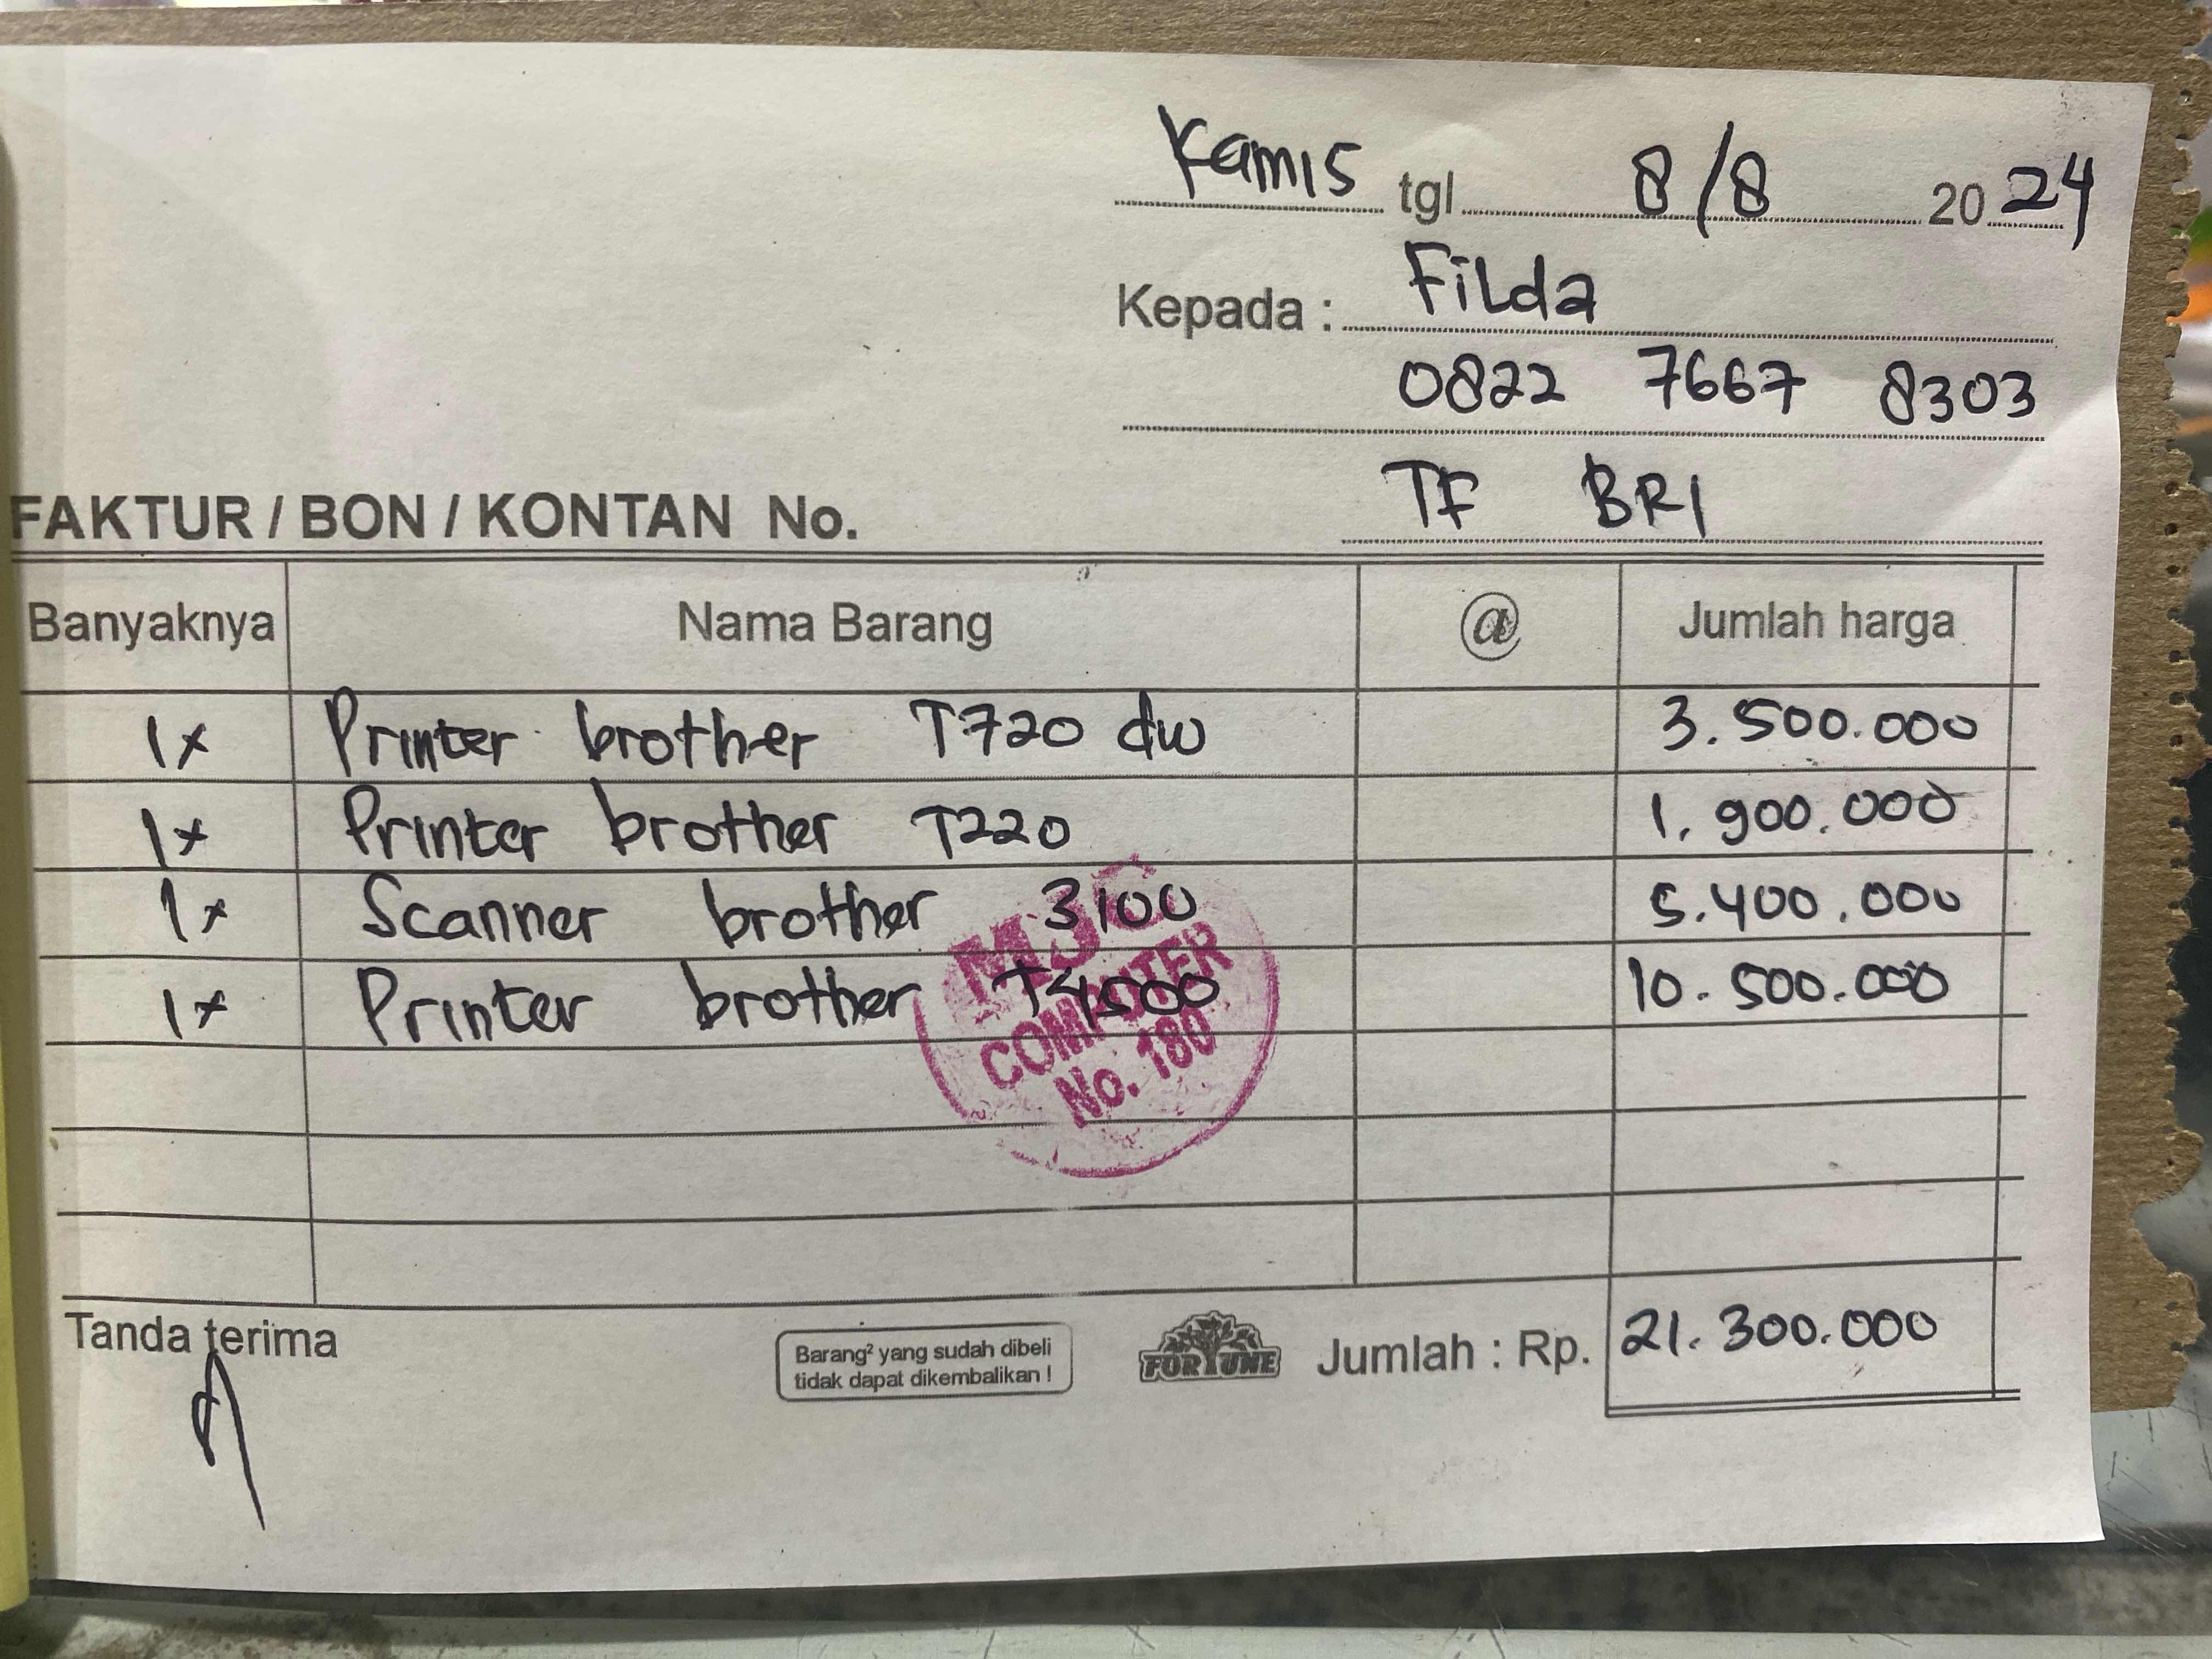 Kamis tgl 8/8 2024
Kepada : Filda
0822 7667 8303
TF BRI
FAKTUR / BON / KONTAN No.
Banyaknya Nama Barang @ Jumlah harga
1x Printer brother T720 dw 3.500.000
1x Printer brother T220 1.900.000
1x Scanner brother 3100 5.400.000
1x Printer brother T4500 10.500.000
COMPUTER
No. 180
Tanda terima
Barang² yang sudah dibeli
tidak dapat dikembalikan !
FORTUNE
Jumlah : Rp. 21.300.000